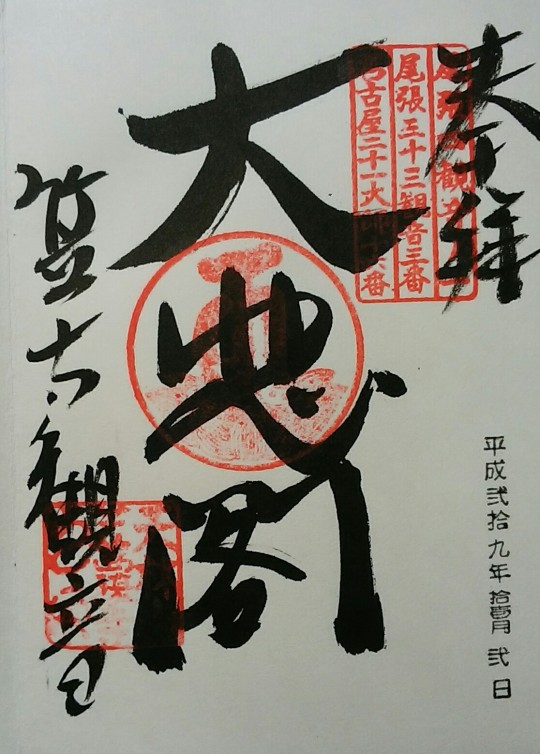 奉拝
尾張四観音
尾張三十三観音三番
名古屋二十一大師番
大悲閣
笠寺観音
平成弐拾九年拾壹月弐日